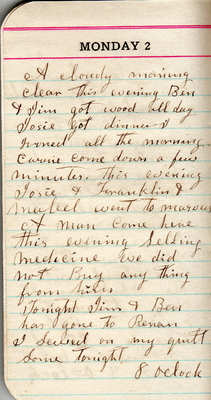 MONDAY 2
A cloudy morning
clear this evening Ben
& Jim got wood all day
Josie got dinner I
Ironed all the morning.
Carrie come down a few
minutes. this evening
Josie & Franklin &
went to
A man come here
this evening selling
medicine we did
not Buy any thing
from him
Tonight Jim & Ben
has gone to Renan
I Sewed on my quilt
Some tonight
8 oclock